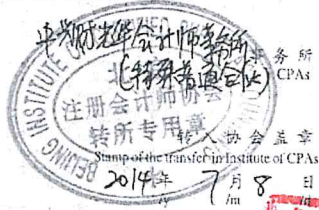 中兴财光华会计师事务所
事务所
(特殊普通合伙)
CPAs
BEIJING INSTITUTE
注册会计师协会
转所专用章
转入协会盖章
Stamp of the transfer-in Institute of CPAs
2014年 7月 8日
/y /m /d